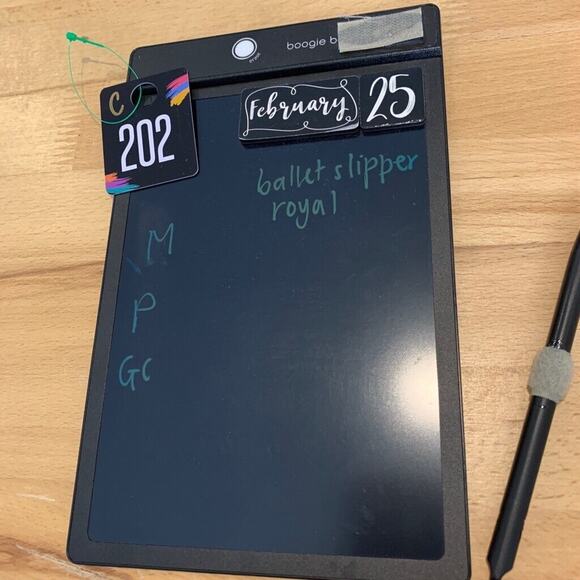 boogie b
C
202
February 25
ballet slipper
royal
M
P
GC